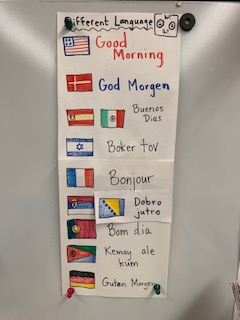 Different Language
Good
Morning
God Morgen
Buenos
Dias
Boker tov
Bonjour
Dobro
jutro
Bom dia
Kemay ale
kum
Gutan Morgen